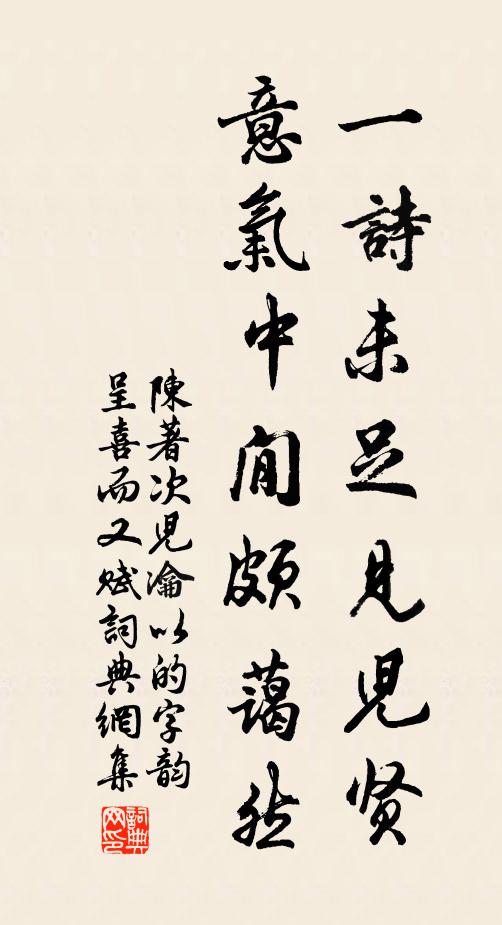 一詩未足見児贤
意氣中間頗藹然
陳著次児瀹以的字韵
呈喜而又赋詞典網集
詞典
网印